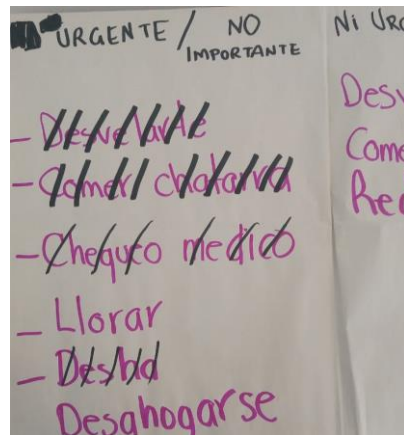 URGENTE / NO
IMPORTANTE
- Desvelarte
- Comerl chatarra
- Chequeo medico
- Llorar
-
Desahogarse
Ni URG
Desv
Come
Rec